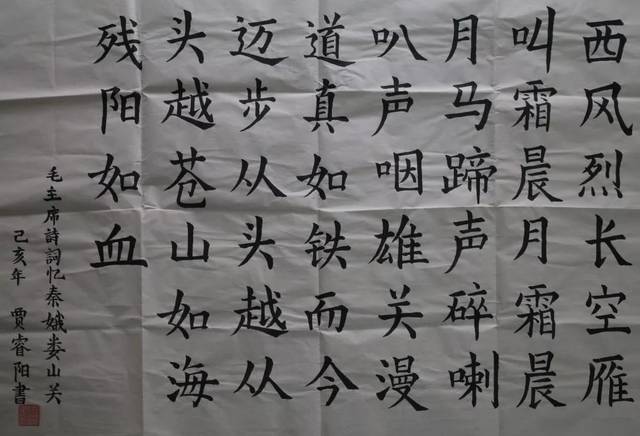 西风烈长空雁
叫霜晨月霜晨
月马蹄声碎喇
叭声咽雄关漫
道真如铁而今
迈步从头越从
头越苍山如海
残阳如血
毛主席詩詞忆秦娥娄山关
己亥年 贾睿阳書